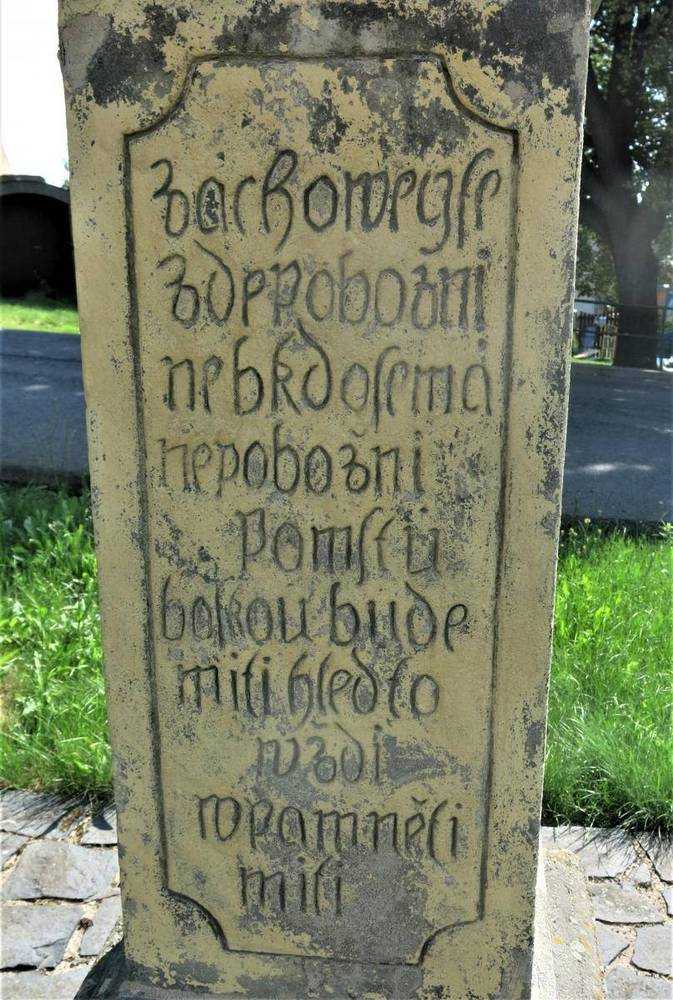 zachoweyſe
zdepobožni
nebkdoſemá
nepobožni
Pomſtú
bokou bude
miti hledto
wždi
wpamněti
miti